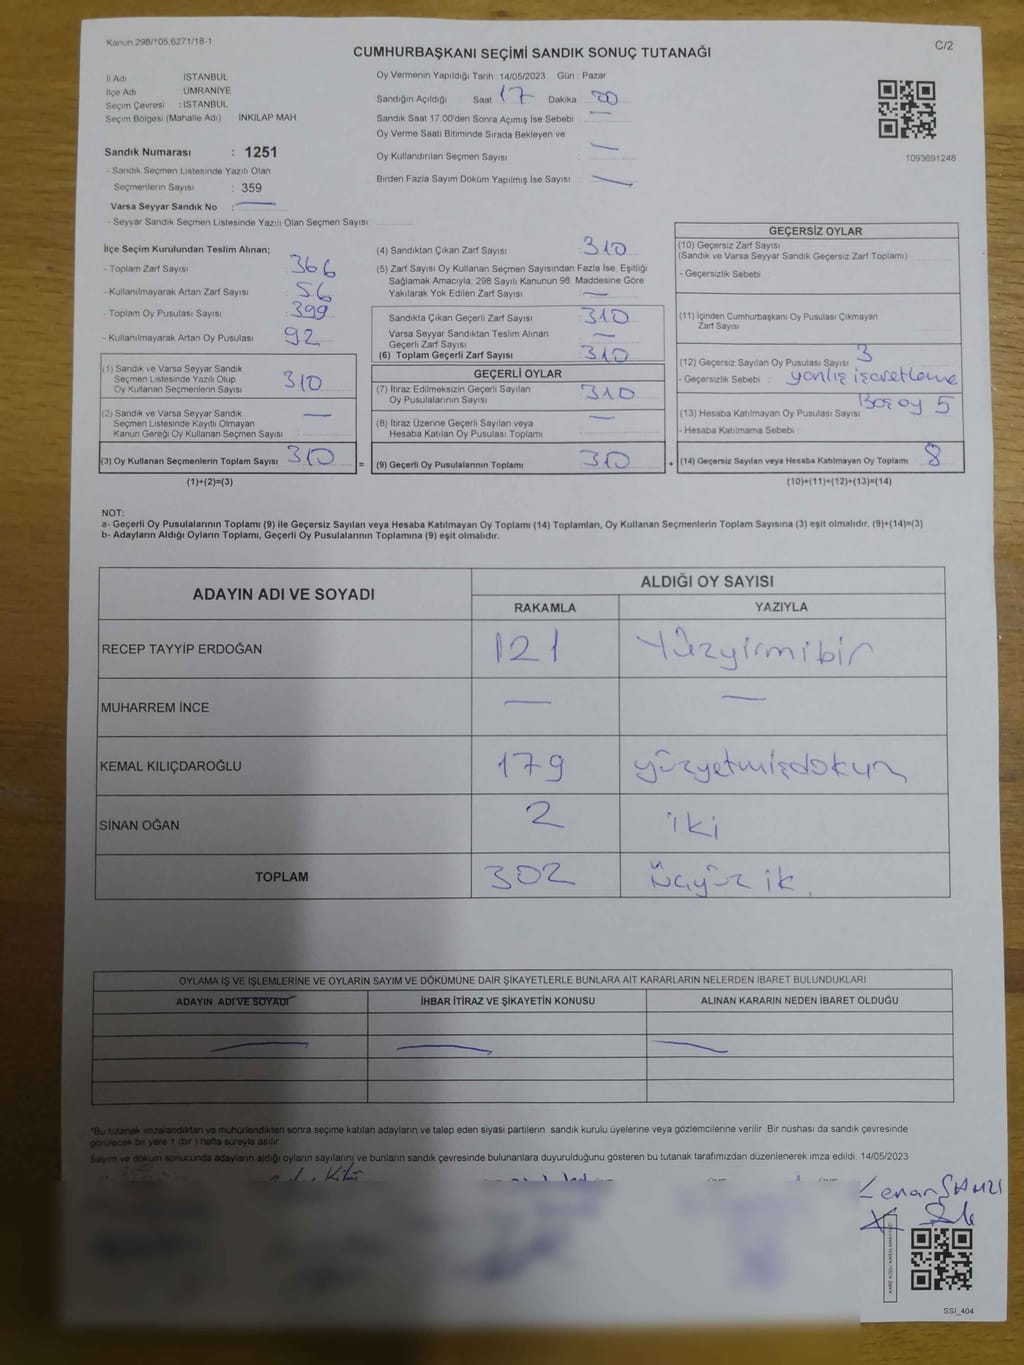 Kanun 298/*105,6271/18-1
C/2
CUMHURBAŞKANI SEÇİMİ SANDIK SONUÇ TUTANAĞI
İl Adı İSTANBUL
İlçe Adı ÜMRANİYE
Seçim Çevresi : İSTANBUL
Seçim Bölgesi (Mahalle Adı) İNKILAP MAH
Sandık Numarası : 1251
- Sandık Seçmen Listesinde Yazılı Olan
Seçmenlerin Sayısı : 359
Varsa Seyyar Sandık No :
- Seyyar Sandık Seçmen Listesinde Yazılı Olan Seçmen Sayısı
Oy Vermenin Yapıldığı Tarih 14/05/2023 Gün : Pazar
Sandığın Açıldığı Saat 17 Dakika
Sandık Saat 17.00'den Sonra Açımış İse Sebebi
Oy Verme Saati Bitiminde Sırada Bekleyen ve
Oy Kullandırılan Seçmen Sayısı
Birden Fazla Sayım Döküm Yapılmış İse Sayısı
1093691246
İlçe Seçim Kurulundan Teslim Alınan;
- Toplam Zarf Sayısı 366
- Kullanılmayarak Artan Zarf Sayısı 56
- Toplam Oy Pusulası Sayısı 399
- Kullanılmayarak Artan Oy Pusulası 92
(1) Sandık ve Varsa Seyyar Sandık
Seçmen Listesinde Yazılı Olup
Oy Kullanan Seçmenlerin Sayısı 310
(2) Sandık ve Varsa Seyyar Sandık
Seçmen Listesinde Kayıtlı Olmayan
Kanun Gereği Oy Kullanan Seçmen Sayısı
(3) Oy Kullanan Seçmenlerin Toplam Sayısı 310 =
(1)+(2)=(3)
(4) Sandıktan Çıkan Zarf Sayısı 310
(5) Zarf Sayısı Oy Kullanan Seçmen Sayısından Fazla İse, Eşitliği
Sağlamak Amacıyla; 298 Sayılı Kanunun 98. Maddesine Göre
Yakılarak Yok Edilen Zarf Sayısı
Sandıkta Çıkan Geçerli Zarf Sayısı 310
Varsa Seyyar Sandıktan Teslim Alınan
Geçerli Zarf Sayısı
(6) Toplam Geçerli Zarf Sayısı 310
GEÇERLİ OYLAR
(7) İtiraz Edilmeksizin Geçerli Sayılan
Oy Pusulasının Sayısı 310
(8) İtiraz Üzerine Geçerli Sayılan veya
Hesaba Katılan Oy Pusulası Toplamı
(9) Geçerli Oy Pusulalarının Toplamı 310 +
GEÇERSİZ OYLAR
(10) Geçersiz Zarf Sayısı
(Sandık ve Varsa Seyyar Sandık Geçersiz Zarf Toplamı)
- Geçersizlik Sebebi
(11) İçinden Cumhurbaşkanı Oy Pusulası Çıkmayan
Zarf Sayısı
(12) Geçersiz Sayılan Oy Pusulası Sayısı 3
- Geçersizlik Sebebi : yanlış işaretleme
(13) Hesaba Katılmayan Oy Pusulası Sayısı Boş oy 5
- Hesaba Katılmama Sebebi
(14) Geçersiz Sayılan veya Hesaba Katılmayan Oy Toplamı 8
(10)+(11)+(12)+(13)=(14)
NOT:
a- Geçerli Oy Pusulalarının Toplamı (9) ile Geçersiz Sayılan veya Hesaba Katılmayan Oy Toplamı (14) Toplamları, Oy Kullanan Seçmenlerin Toplam Sayısına (3) eşit olmalıdır. (9)+(14)=(3)
b- Adayların Aldığı Oyların Toplamı, Geçerli Oy Pusulalarının Toplamına (9) eşit olmalıdır.
ADAYIN ADI VE SOYADI ALDIĞI OY SAYISI
RAKAMLA YAZIYLA
RECEP TAYYİP ERDOĞAN 121 Yüzyirmibir
MUHARREM İNCE
KEMAL KILIÇDAROĞLU 179 yüzyetmişdokuz
SİNAN OĞAN 2 iki
TOPLAM 302 Üçyüz ik
OYLAMA İŞ VE İŞLEMLERİNE VE OYLARIN SAYIM VE DÖKÜMÜNE DAİR ŞİKAYETLERLE BUNLARA AİT KARARLARIN NELERDEN İBARET BULUNDUKLARI
ADAYIN ADI VE SOYADI İHBAR İTİRAZ VE ŞİKAYETİN KONUSU ALINAN KARARIN NEDEN İBARET OLDUĞU
*Bu tutanak imzalandıktan ve mühürlendikten sonra seçime katılan adayların ve talep eden siyasi partilerin sandık kurulu üyelerine veya gözlemcilerine verilir. Bir nüshası da sandık çevresinde
görülecek bir yere 1 (bir) hafta süreyle asılır.
Sayım ve döküm sonucunda adayların aldığı oyların sayılarını ve bunların sandık çevresinde bulunanlara duyurulduğunu gösteren bu tutanak tarafımızdan düzenlenerek imza edildi. 14/05/2023
Kenan
SSİ_404